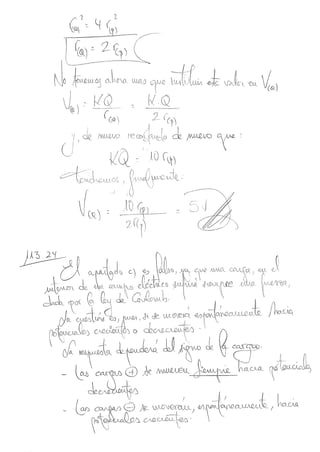 r²(Q) = 4 r²(P)
r(Q) = 2 r(P)
No tenemos ahora mas que sustituir este valor en V(Q)
V(Q) = KQ / r(Q) = K.Q / 2 r(P)
y, de nuevo recordando de nuevo que:
KQ = 10 r(P)
tendremos, finalmente:
V(Q) = 10 r(P) / 2 r(P) = 5 V
113.24
El apartado c) es falso, ya que una carga, en el
interior de un campo eléctrico sufrirá siempre una fuerza,
dada por la ley de Coulomb.
La cuestión es, pues, si se moverá espontáneamente hacia
potenciales crecientes o decrecientes.
La respuesta dependerá del signo de la carga.
- Las cargas ⊕ se mueven siempre hacia potenciales
decrecientes
- Las cargas ⊖ se moverán, espontáneamente, hacia
potenciales crecientes.